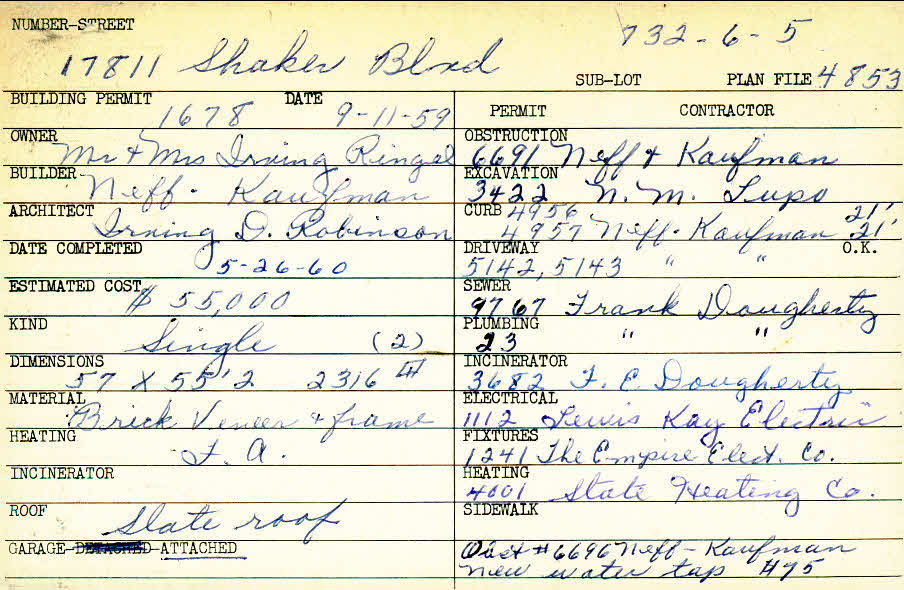 NUMBER-STREET
732-6-5
17811 Shaker Blvd
SUB-LOT PLAN FILE 4853
BUILDING PERMIT DATE
1678 9-11-59
OWNER
Mr & Mrs Irving Ringel
BUILDER
Neff - Kaufman
ARCHITECT
Irving D. Robinson
DATE COMPLETED
5-26-60
ESTIMATED COST
$ 55,000
KIND
Single (2)
DIMENSIONS
57 X 55'2 2316
MATERIAL
Brick Veneer & frame
HEATING
F. A.
INCINERATOR
ROOF
Slate roof
GARAGE-DETACHED-ATTACHED
PERMIT CONTRACTOR
OBSTRUCTION
6691 Neff & Kaufman
EXCAVATION
3422 N. M. Lupo
CURB 4956 21'
4957 Neff- Kaufman 21'
DRIVEWAY O.K.
5142, 5143 " "
SEWER
9767 Frank Dougherty
PLUMBING
23 " "
INCINERATOR
3682 F. E. Dougherty
ELECTRICAL
1112 Lewis Kay Electric
FIXTURES
1241 The Empire Elect. Co.
HEATING
4001 State Heating Co.
SIDEWALK
Obst #6696 Neff-Kaufman
New water tap #75